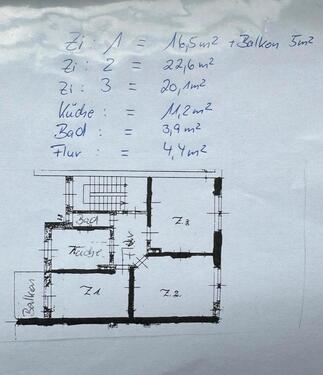 Zi : 1 = 16,5m² + Balkon 5m²
Zi : 2 = 22,6m²
Zi : 3 = 20,1m²
Küche : = 11,2m²
Bad : = 3,9m²
Flur : = 4,4m²
Bad
Z.3
Küche
Flur
Balkon
Z.1
Z.2.